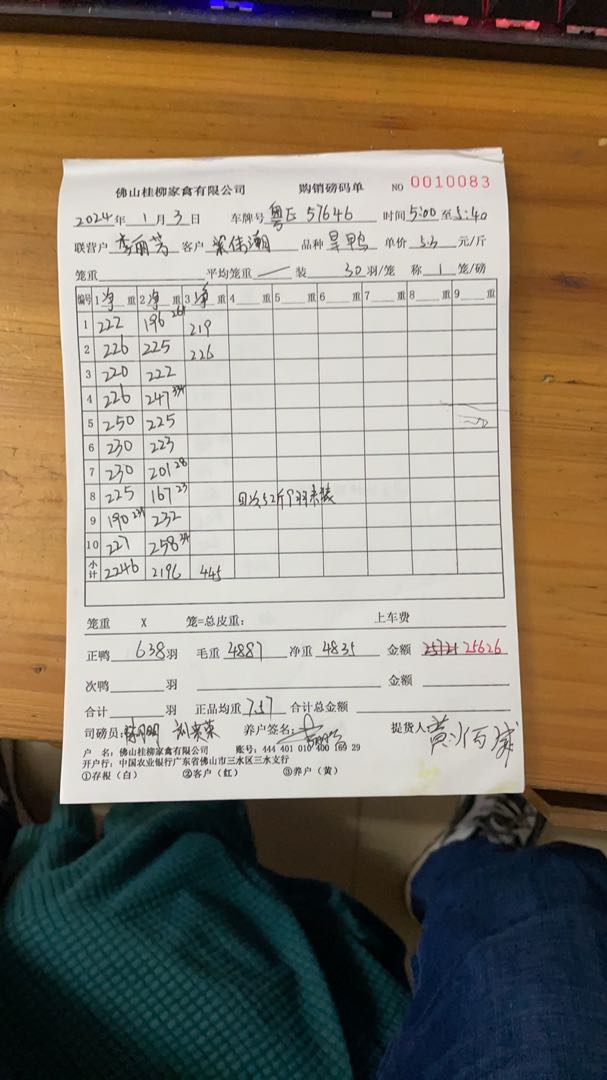 佛山桂柳家禽有限公司 购销磅码单 NO 0010083
2024年 1月 3日 车牌号 粤E 57646 时间 5:00 至 5:40
联营户 李丽芳 客户 梁伟潮 品种 旱鸭 单价 5.3 元/斤
笼重 平均笼重 装 30 羽/笼 称 1 笼/磅
编号 1 净 重 2 净 重 3 净 重 4 重 5 重 6 重 7 重 8 重 9 重
1 222 196 26 219
2 226 225 226
3 220 222
4 226 247 34
5 250 225
6 230 223
7 230 201 28
8 225 167 23
9 190 25 232
10 227 258 34
小计 2246 2196 445
笼重 X 笼=总皮重: 上车费
正鸭 638 羽 毛重 4887 净重 4835 金额 25626
次鸭 羽 金额
合计 羽 正品均重 7.57 合计总金额
司磅员: 养户签名: 提货人
户 名: 佛山桂柳家禽有限公司 账号: 444 401 010 400 169 29
开户行: 中国农业银行广东省佛山市三水区三水支行
①存根(白) ②客户(红) ③养户(黄)